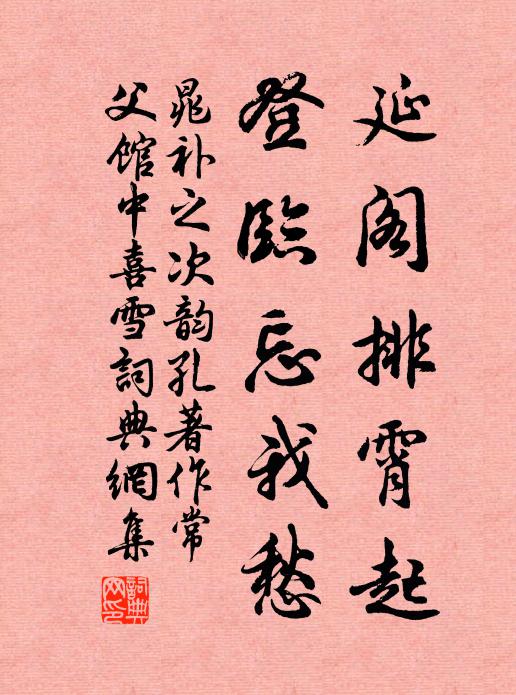 延阁排霄起
登臨忘我愁
晁补之次韵孔著作常
父館中喜雪詞典網集